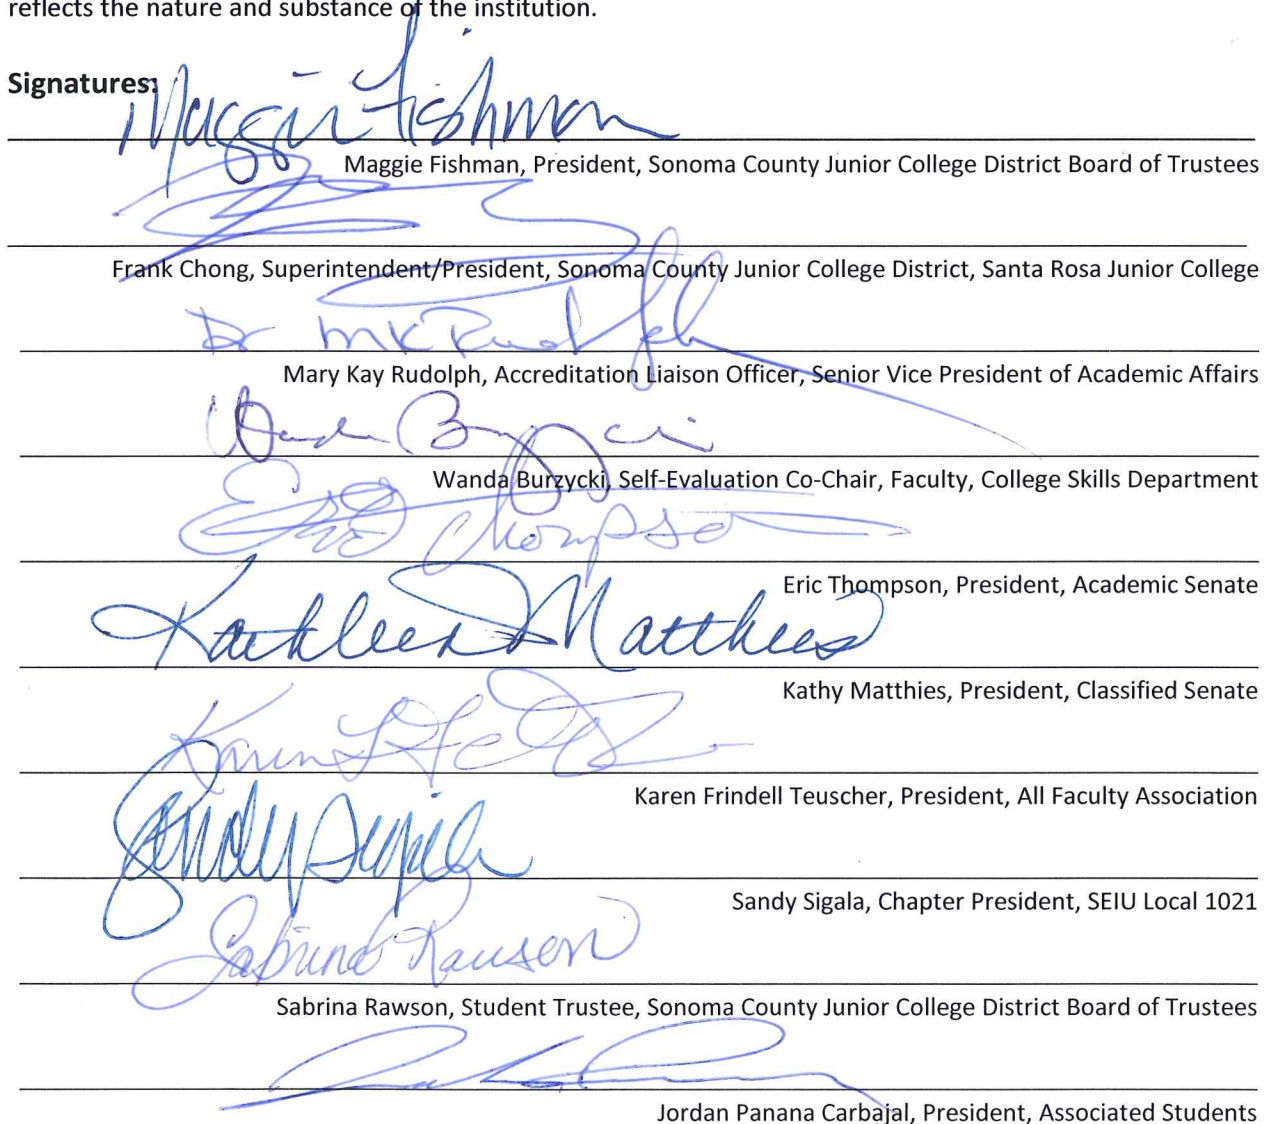 reflects the nature and substance of the institution.
Signatures:
Maggie Fishman
Maggie Fishman, President, Sonoma County Junior College District Board of Trustees
Frank Chong, Superintendent/President, Sonoma County Junior College District, Santa Rosa Junior College
Dr MK Rudolph
Mary Kay Rudolph, Accreditation Liaison Officer, Senior Vice President of Academic Affairs
Wanda Burzycki
Wanda Burzycki, Self-Evaluation Co-Chair, Faculty, College Skills Department
Eric Thompson
Eric Thompson, President, Academic Senate
Kathleen Matthies
Kathy Matthies, President, Classified Senate
Karen
Karen Frindell Teuscher, President, All Faculty Association
Sandy Sigala
Sandy Sigala, Chapter President, SEIU Local 1021
Sabrina Rawson
Sabrina Rawson, Student Trustee, Sonoma County Junior College District Board of Trustees
Jordan Panana Carbajal, President, Associated Students